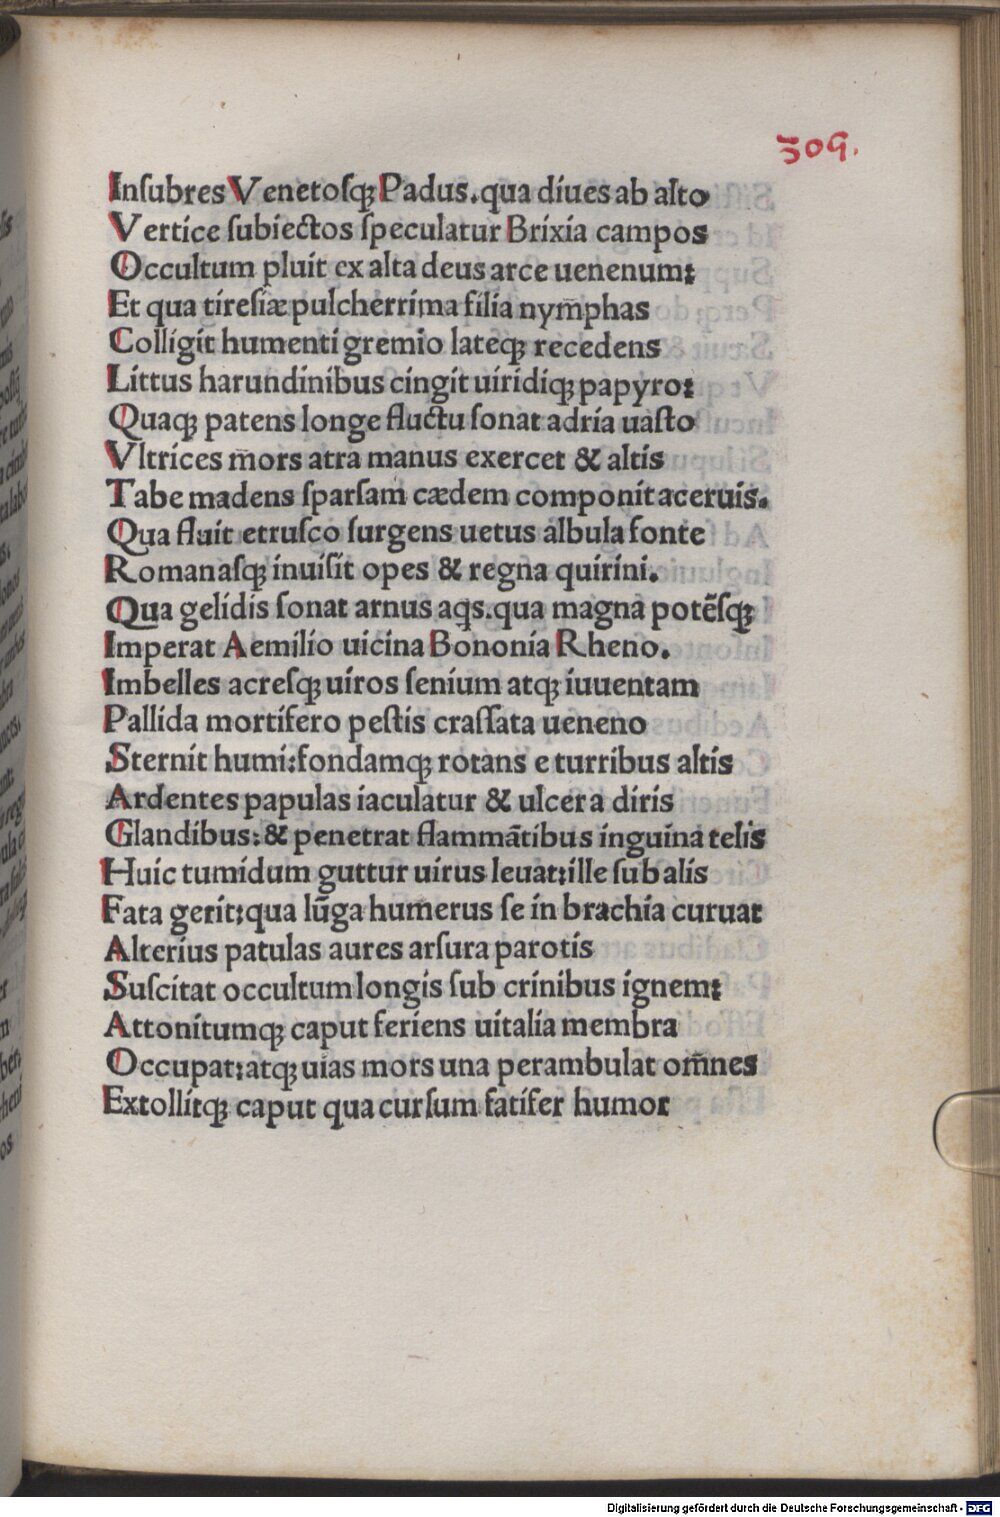 309.
Inſubres Venetoſqꝫ Padus.qua diues ab alto
Vertice ſubiectos ſpeculatur Brixia campos
Occultum pluit ex alta deus arce uenenum:
Et qua tireſiæ pulcherrima filia nym̄phas
Colligit humenti gremio lateqꝫ recedens
Littus harundinibus cingit uiridiqꝫ papyro:
Quaqꝫ patens longe fluctu ſonat adria uaſto
Vltrices m̄ors atra manus exercet & altis
Tabe madens ſparſam cædem componit aceruis.
Qua fluit etruſco ſurgens uetus albula fonte
Romanaſqꝫ inuiſit opes & regna quirini.
Qua gelidis ſonat arnus aqs.qua magna potēſqꝫ
Imperat Aemilio uicina Bononia Rheno.
Imbelles acreſqꝫ uiros ſenium atqꝫ iuuentam
Pallida mortifero peſtis craſſata ueneno
Sternit humi:fondamqꝫ rotans e turribus altis
Ardentes papulas iaculatur & ulcera diris
Glandibus:& penetrat flammātibus inguina telis
Huic tumidum guttur uirus leuat:ille ſub alis
Fata gerit:qua lūga humerus ſe in brachia curuat
Alterius patulas aures arſura parotis
Suſcitat occultum longis ſub crinibus ignem:
Attonitumqꝫ caput feriens uitalia membra
Occupat:atqꝫ uias mors una perambulat om̄nes
Extollitqꝫ caput qua curſum fatifer humor
Digitalisierung gefördert durch die Deutsche Forschungsgemeinschaft - DFG